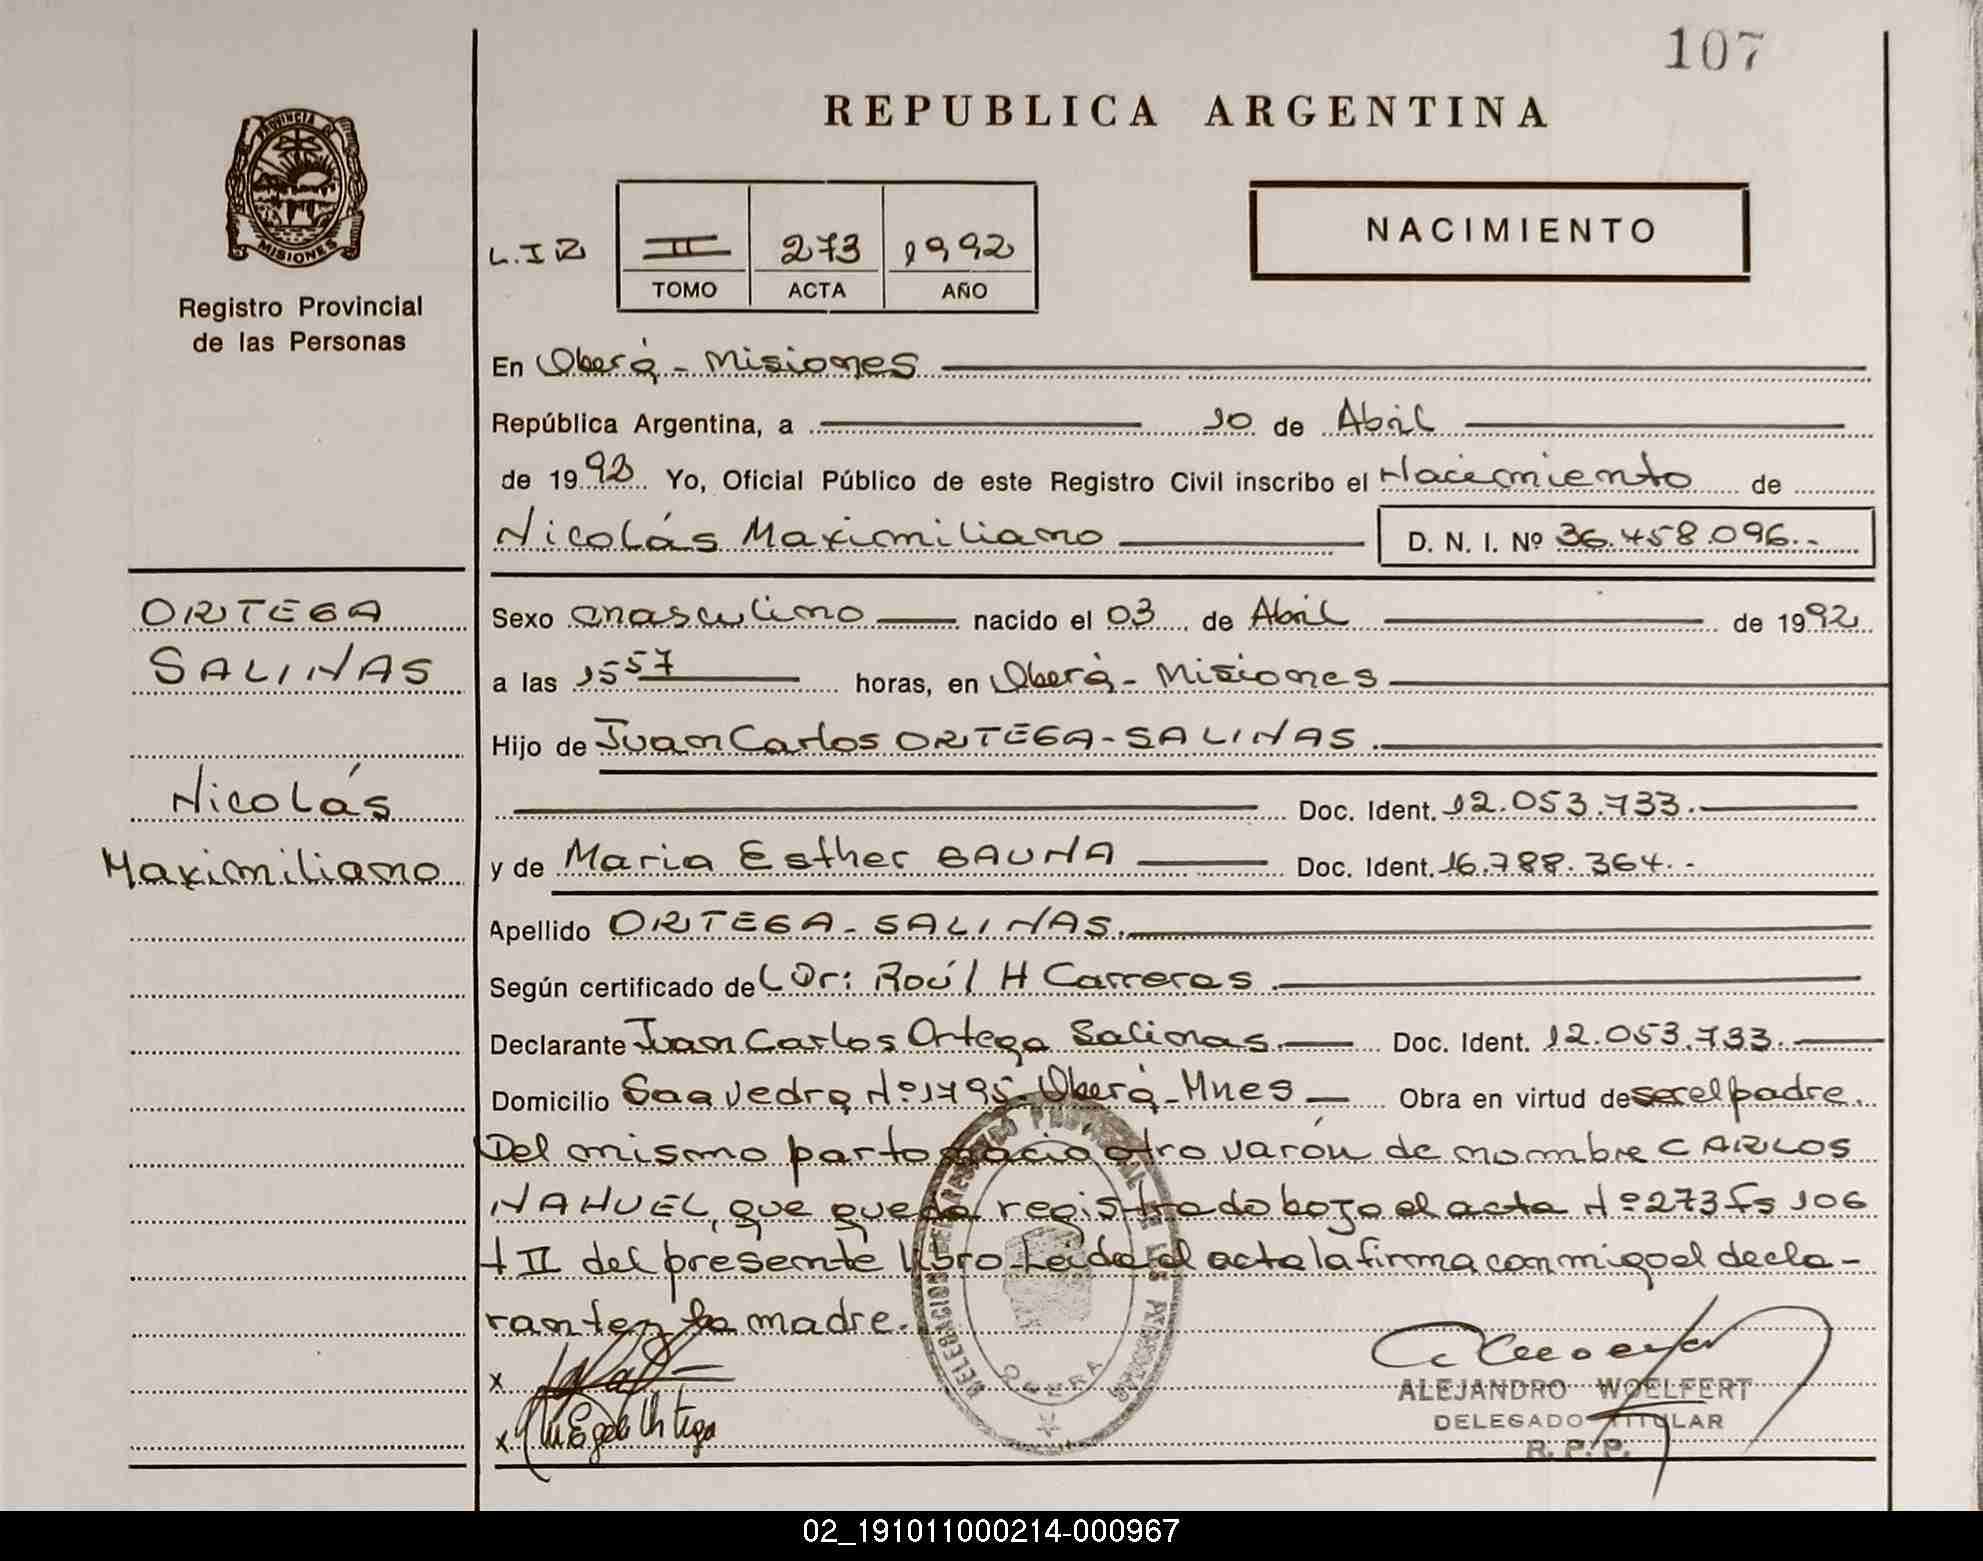 107
REPUBLICA ARGENTINA
PROVINCIA DE
MISIONES
Registro Provincial
de las Personas
NACIMIENTO
II 273 1992
TOMO ACTA AÑO
En Oberá - Misiones
República Argentina, a 10 de Abril
de 1992 Yo, Oficial Público de este Registro Civil inscribo el Nacimiento de
Nicolás Maximiliano D. N. I. Nº 36.458.096.-
ORTEGA
SALINAS
Nicolás
Maximiliano
Sexo masculino nacido el 03 de Abril de 1992
a las 15 57 horas, en Oberá - Misiones
Hijo de Juan Carlos ORTEGA-SALINAS.
Doc. Ident. 12.053.733.
y de Maria Esther GAUNA Doc. Ident. 16.788.364.-
Apellido ORTEGA-SALINAS.
Según certificado de Dr: Raúl H Carreras.
Declarante Juan Carlos Ortega Salinas. Doc. Ident. 12.053.733.
Domicilio Saavedra Nº 1795-Oberá-Mnes Obra en virtud de ser el padre.
Del mismo parto nacio otro varón de nombre CARLOS
NAHUEL, que queda registrado bajo el acta Nº 273 fs 106
t II del presente libro. Leida el acta la firma conmigo el decla-
rante y la madre.
x
x
DELEGACION REGISTRO PROVINCIAL DE LAS PERSONAS
OBERA
ALEJANDRO WOELFERT
DELEGADO TITULAR
R. P. P.
02_191011000214-000967